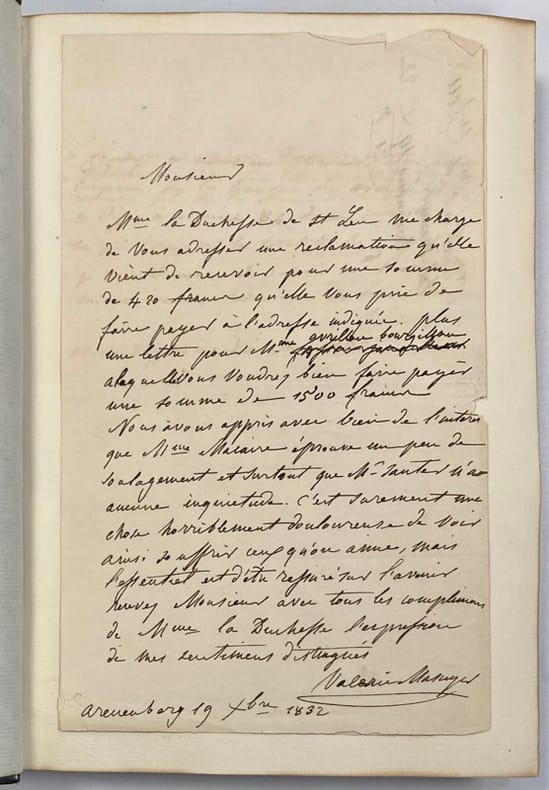 Monsieur
Mme la Duchesse de St Leu me charge
de vous adresser une reclamation qu'elle
vient de recevoir pour une somme
de 420 francs qu'elle vous prie de
faire payer à l'adresse indiquée. plus
une lettre pour Mme
a laquelle vous voudrez bien faire payer
une somme de 1500 francs
Nous avons appris avec bien de l'interes
que Mme Macaire éprouve un peu de
soulagement et surtout que Mr Sauter n'a
aucune inquietude. c'est surement une
chose horriblement douloureuse de voir
ainsi souffrir ceux qu'on aime, mais
l'essentiel est d'être rassuré sur l'avenir
recevez Monsieur avec tous les complimens
de Mme la Duchesse l'expression
de mes sentimens distingués
Valerie Masuyer
arenenberg 19 xbre 1832